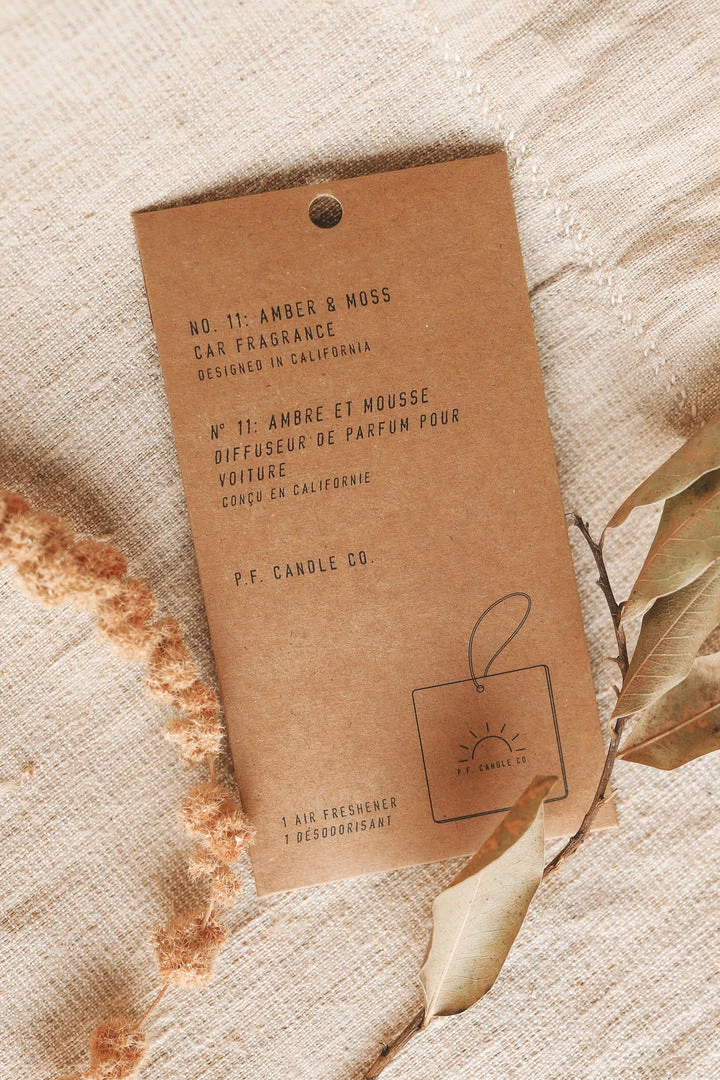 NO. 11: AMBER & MOSS
CAR FRAGRANCE
DESIGNED IN CALIFORNIA
Nº 11: AMBRE ET MOUSSE
DIFFUSEUR DE PARFUM POUR
VOITURE
CONÇU EN CALIFORNIE
P.F. CANDLE CO.
P.F. CANDLE CO
1 AIR FRESHENER
1 DÉSODORISANT